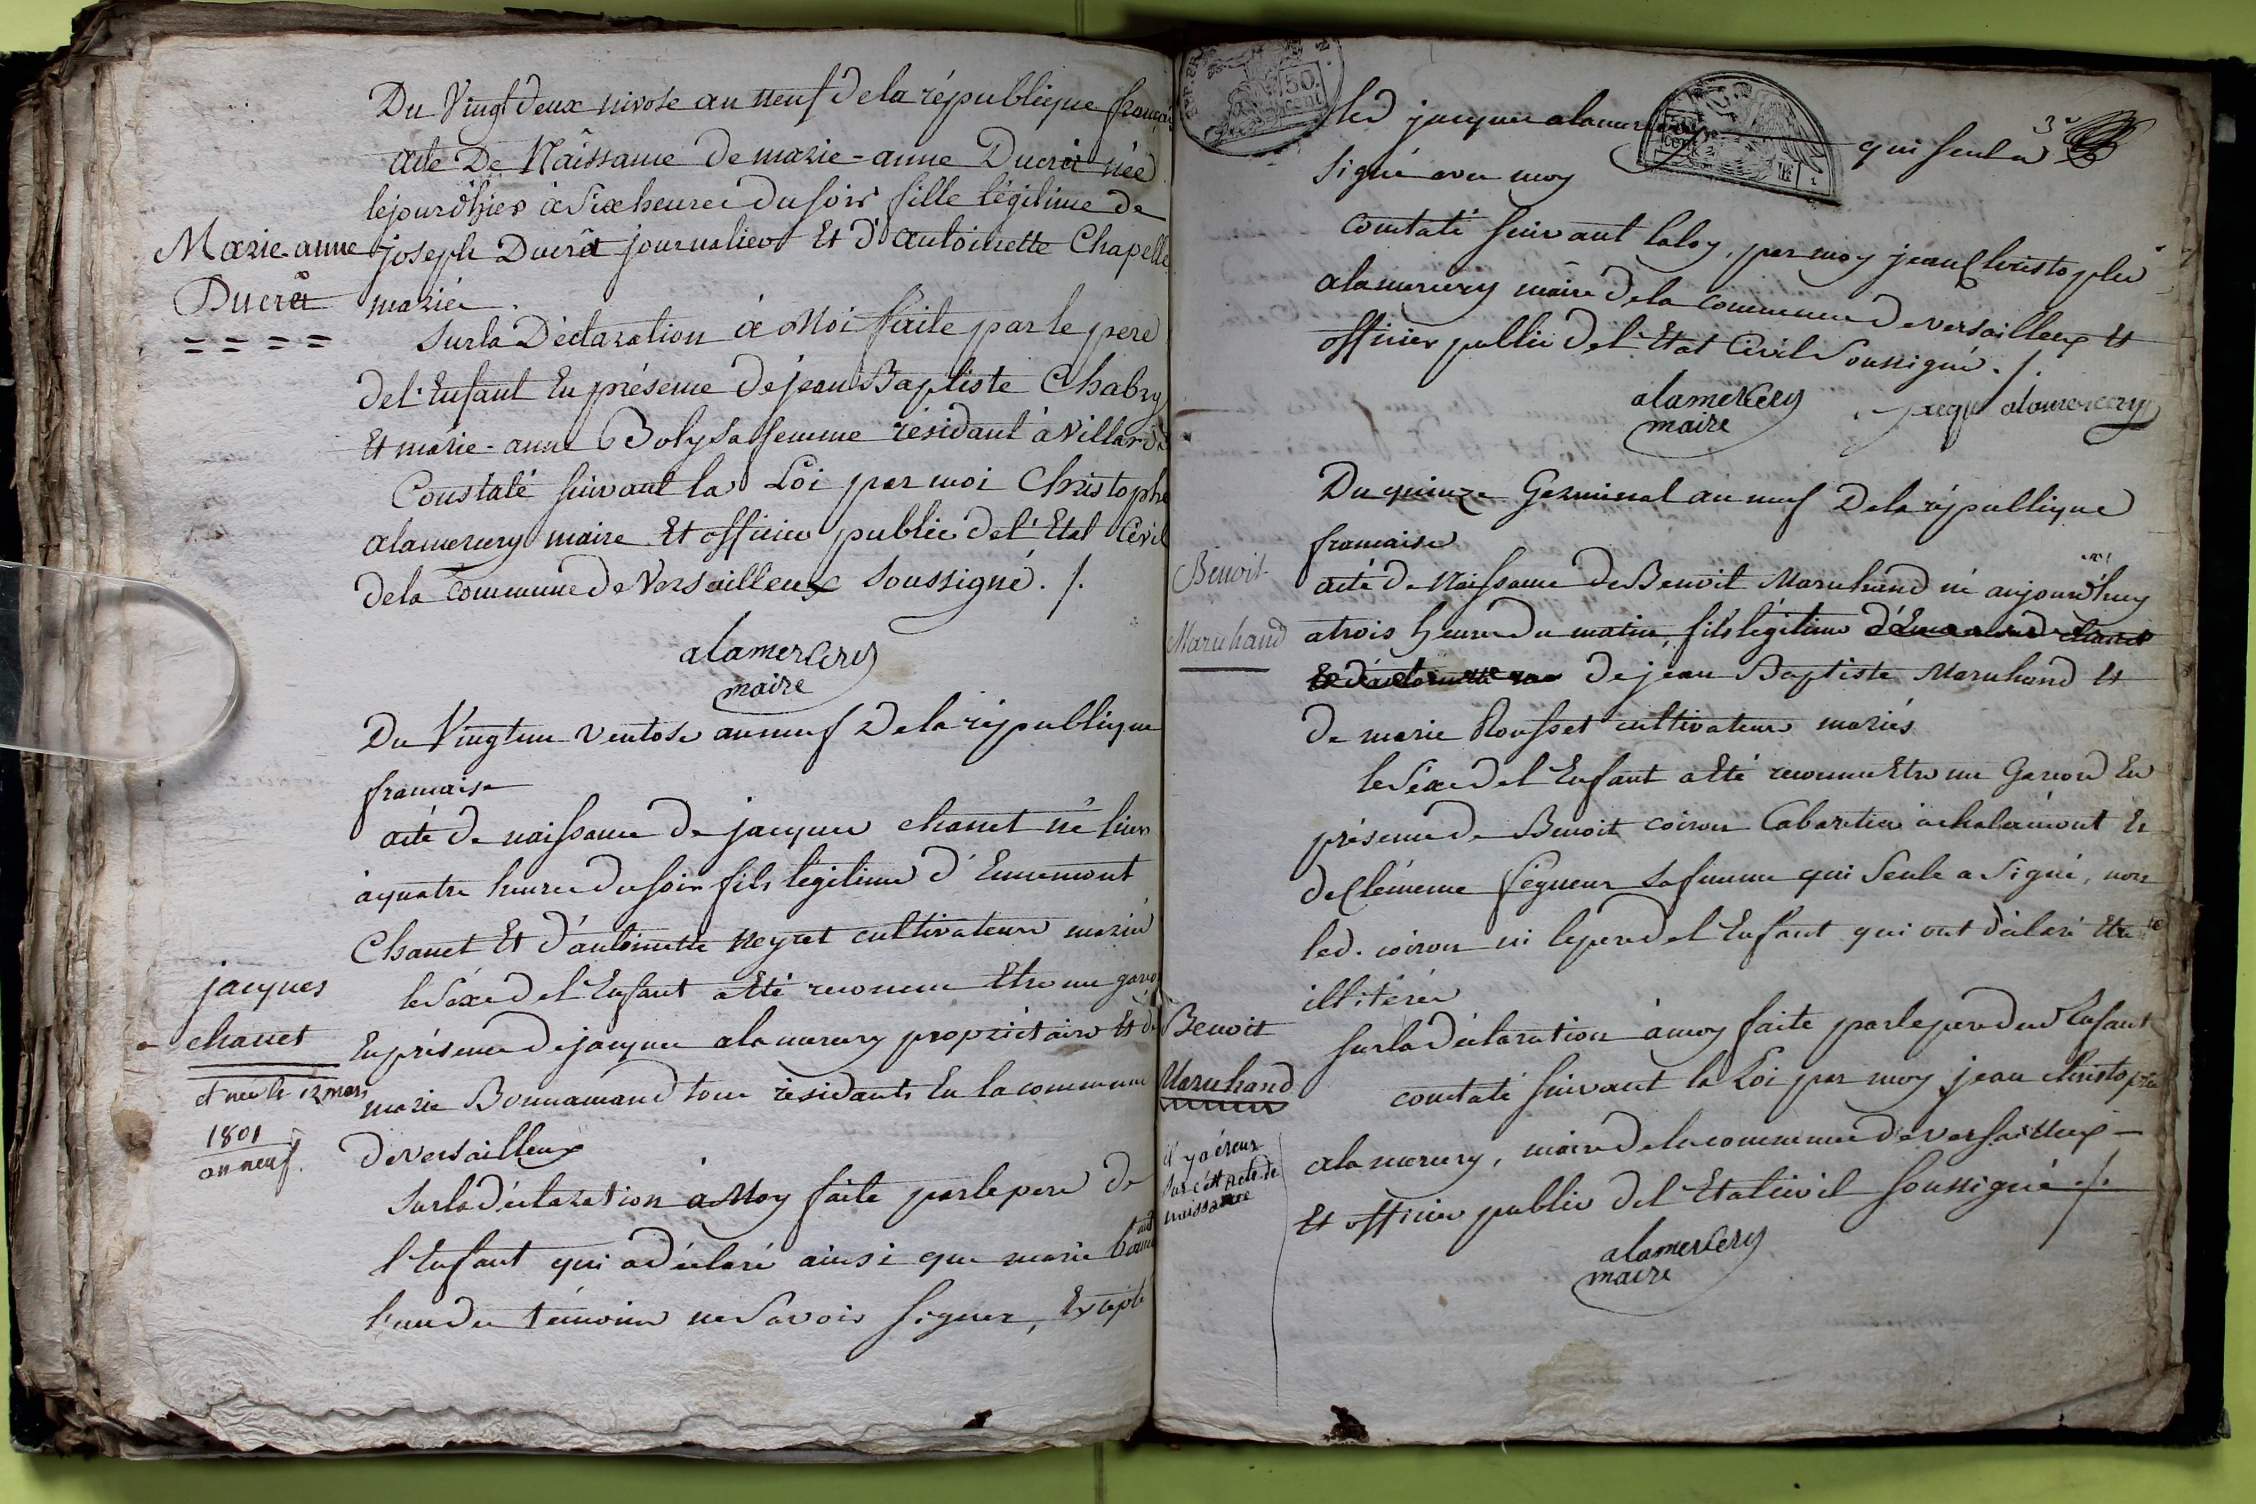 Du Vingt deux nivose an neuf de la république françai
acte De Naissance de marie-anne Ducrêt née
le jour d'hier à Six heures du soir fille légitime de
joseph Ducrêt journalier Et D'antoinette Chapelle
mariés.
Marie-anne
Ducrêt
Sur la Déclaration à Moi faite par le pere
de l'Enfant En présence de jean Baptiste Chabry
Et marie-anne Boly sa femme résidant à Villars
Constaté suivant la Loi par moi Christophe
alamercery maire Et officier public de l'Etat Civil
de la Commune de Versailleux Soussigné ./.
alamercery
maire
Du Vingt un Ventose an neuf De la république
francaise
acte de naissance de jacques chanet né hier
à quatre heures du soir fils légitime d'Ennemont
Chanet Et d'antoinette Neyret cultivateurs mariés
le Séxe de l'Enfant a Eté reconnu Etre un garçon
En présence de jacques alamercery propriétaire Et de
marie Bonnamand tous résidants En la commune
de versailleux
jacques
chanet
et nee le 12 mars
1801
an neuf.
Sur la déclaration à Moy faite par le pere de
l'Enfant qui a déclaré ainsi que marie
l'un des témoins ne Savoir Signer, Excepté
3e
led jacques alamercery qui seul a
Signé avec moy
Constaté suivant la loy, par moy jean Christophe
alamercery maire de la commune de versailleux Et
officier public de l'Etat Civil Soussigné ./.
alamercery
maire
jacque alamercery
Du quinze Germinal an neuf De la république
francaise
acte de Naissance de Benoit Maruhand né aujourd'huy
a trois heures du matin, fils légitime d'Ennemond chanet
Et d'antoinette de jean Baptiste Maruhand Et
de marie Rousset cultivateurs mariés
Benoit
Maruhand
le Séxe de l'Enfant a Eté reconnu Etre un Garcon En
présence de Benoit coiron Cabaretier à chalamont Et
de Clémence segueur sa femme qui Seule a Signé, non
led. coiron ni le pere de l'Enfant qui ont déclaré Etre
illitérés
Sur la déclaration à moy faite par le pere dud Enfant
Constaté suivant la Loi par moy jean christophe
alamercery, maire de la commune de versailleux
Et officier public de l'Etat civil soussigné ./.
Benoit
Maruhand
il y a éreur
sur cett acte de
naissance
alamercery
maire